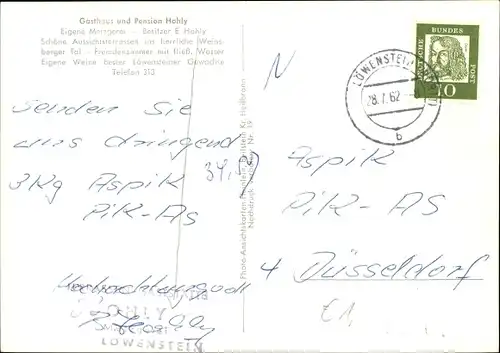 Gasthaus und Pension Hohly
Eigene Metzgerei - Besitzer E. Hohly
Schöne Aussichtsterrasse ins herrliche Weins-
berger Tal - Fremdenzimmer mit fließ. Wasser
Eigene Weine bester Löwensteiner Gewächse
Telefon 313
Senden Sie
uns dringend
3Kg Aspik
PiK-AS
Hochachtungsvoll
HOHLY
LÖWENSTEIN
Nachdruck Nr. 19
DEUTSCHE BUNDESPOST
10
LÖWENSTEIN
28.7.62
b
N
Aspik
PiK-AS
4 Düsseldorf
€1